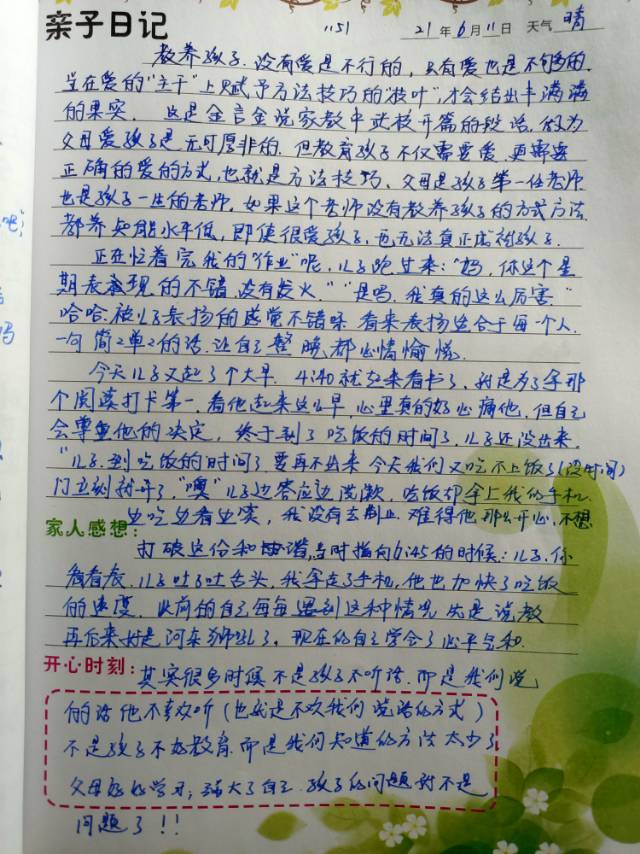 亲子日记 1151 21年6月11日 天气 晴
教养孩子.没有爱是不行的,只有爱也是不够的.
当在爱的“主干”上赋予方法技巧的“枝叶”,才会结出丰满满
的果实. 这是全言金说家教中此校开篇的段话.做为
父母爱孩子是无可厚非的.但教育孩子不仅需要爱.更需要
正确的爱的方式.也就是方法技巧.父母是孩子第一任老师
也是孩子一生的老师.如果这个老师没有教养孩子的方式方法
都养知能水平低,即使很爱孩子,也无法真正成就孩子.
正在忙着完我的“作业”呢,儿子跑过来:“妈,你这个星
期表现的不错,没有发火.”“是吗.我真的这么厉害”
哈哈.被儿子表扬的感觉不错呀 看来表扬适合于每一个人.
一句简2单2的话.让自己整晚都心情愉悦.
今天儿子又起了个大早. 4:40就起来看书了,就是为了拿那
个阅读打卡第一.看他起来这么早,心里真的好心痛他,但自己
会尊重他的决定, 终于到了吃饭的时间了.儿子还没出来.
“儿子.到吃饭的时间了.要再不出来 今天我们又吃不上饭了(没时间)
门立刻就开了,“噢”儿子边答应边洗漱.吃饭却拿上我的手机.
家人感想: 边吃边看边笑,我没有去制止.难得他那么开心,不想
打破这份和谐,当时指向6:45的时候:儿子.你
看看表.儿子吐了吐舌头,我拿走了手机,他也加快了吃饭
的速度. 以前的自己每每遇到这种情况 先是说教
再后来就是河东狮吼了, 现在的自己学会了心平气和.
开心时刻: 其实很多时候不是孩子不听话.而是我们说
的话他不喜欢听(也就是不欢我们说话的方式)
不是孩子不好教育.而是我们知道的方法太少了
父母好好学习,强大了自己.孩子的问题就不是
问题了!!
吧!
妈